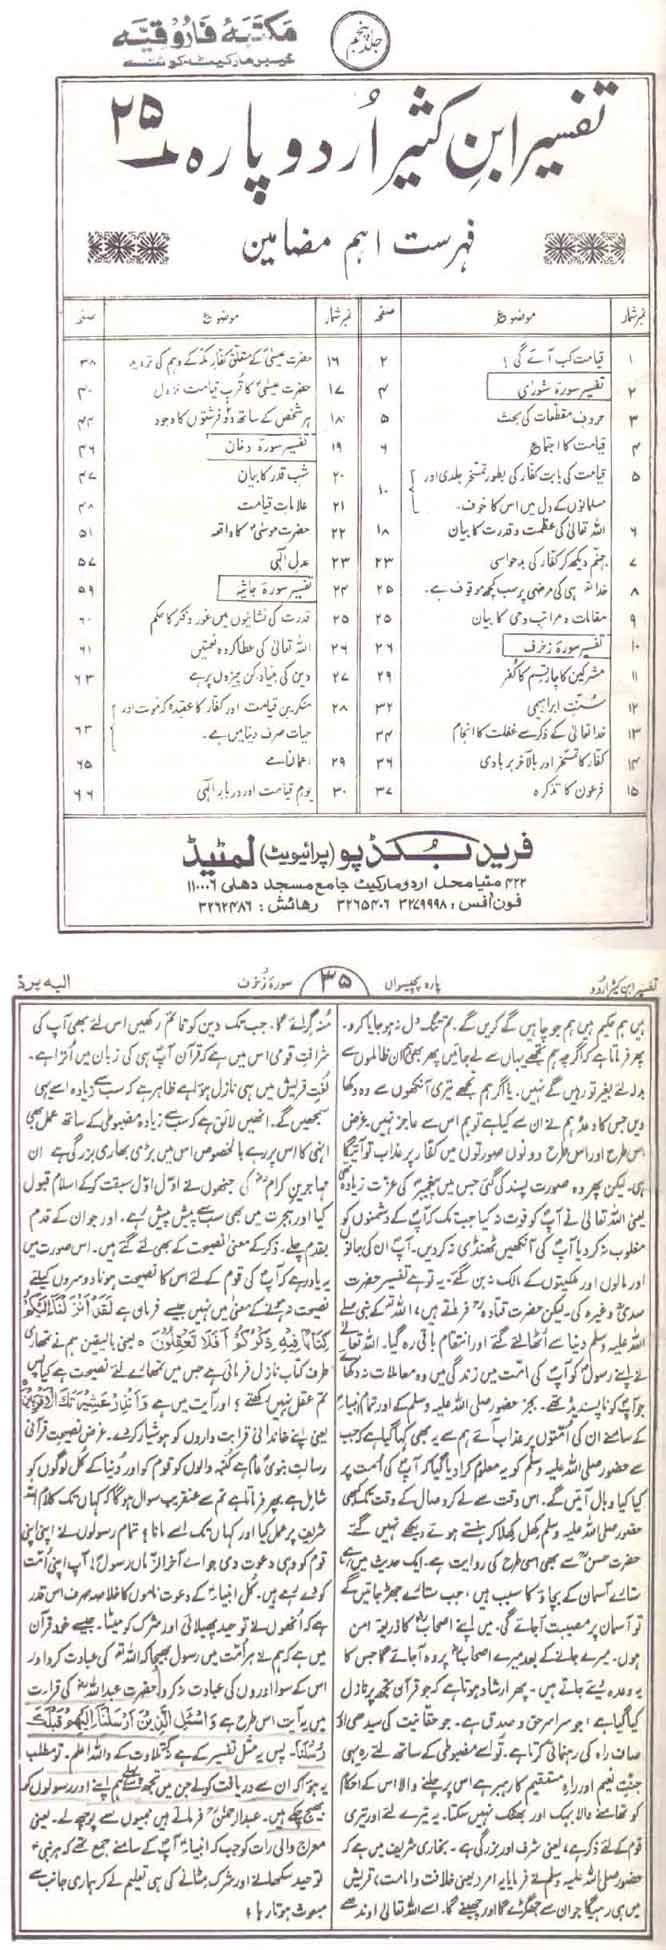 مکتبہ فاروقیہ
جلد پنجم
تفسیر ابن کثیر اردو پارہ ۲۵
فہرست اہم مضامین
نمبر شمار موضوع صفحہ نمبر شمار موضوع صفحہ
۱ قیامت کب آئے گی؟ ۲
۲ تفسیر سورۃ شوریٰ ۴
۳ حروف مقطعات کی بحث ۵
۴ قیامت کا اجتماع ۶
۵ قیامت کی بابت کفار کی بطور تمسخر جلدی اور
مسلمانوں کے دل میں اس کا خوف۔ ۱۰
۶ اللہ تعالیٰ کی عظمت و قدرت کا بیان ۱۸
۷ جہنم دیکھ کر کفار کی بدحواسی ۲۳
۸ خدا تعالیٰ ہی کی مرضی پر سب کچھ موقوف ہے۔ ۲۵
۹ مقامات و مراتب وحی کا بیان ۲۵
۱۰ تفسیر سورۃ زخرف ۲۶
۱۱ مشرکین کا چار قسم کا کفر ۲۹
۱۲ سنت ابراہیمی ۳۲
۱۳ خدا تعالیٰ کے ذکر سے غفلت کا انجام ۳۴
۱۴ کفار کا تمسخر اور بالآخر بربادی ۳۶
۱۵ فرعون کا تذکرہ ۳۷
۱۶ حضرت عیسیٰؑ کے متعلق کفار مکہ کے وہم کی تردید ۳۸
۱۷ حضرت عیسیٰؑ کا قرب قیامت نزول ۴۰
۱۸ ہر شخص کے ساتھ دو فرشتوں کا وجود ۴۴
۱۹ تفسیر سورۃ دخان ۴۶
۲۰ شب قدر کا بیان ۴۷
۲۱ علامات قیامت ۴۸
۲۲ حضرت موسیٰؑ کا واقعہ ۵۱
۲۳ عدل الٰہی ۵۷
۲۴ تفسیر سورۃ جاثیہ ۵۹
۲۵ قدرت کی نشانیوں میں غور و فکر کا حکم ۶۰
۲۶ اللہ تعالیٰ کی عطا کردہ نعمتیں ۶۱
۲۷ دین کی بنیاد کن چیزوں پر ہے ۶۳
۲۸ منکرین قیامت اور کفار کا عقیدہ کہ موت اور
حیات صرف دنیا میں ہے۔ ۶۳
۲۹ اعمالنامے ۶۵
۳۰ یوم قیامت اور دربار الٰہی ۶۶
فرید بکڈپو (پرائیویٹ) لمٹیڈ
۴۲۲ مٹیا محل اردو مارکیٹ جامع مسجد دھلی ۱۱۰۰۰۶
فون آفس: ۳۲۷۹۹۹۸ ۳۲۶۵۴۰۶ رھائش: ۳۲۶۲۴۸۶
تفسیر ابن کثیر اردو پارہ پچیسواں ۳۵ سورۃ زخرف الیہ یرد
ہیں ہم حکیم ہیں ہم جو چاہیں گے کریں گے۔ تم تنگ دل نہ ہو جایا کرو۔
پھر فرماتا ہے کہ اگرچہ ہم تجھے یہاں سے لے جائیں پھر بھی ہم ان ظالموں سے
بدلہ لئے بغیر تو رہیں گے نہیں۔ یا اگر ہم تجھے تیری آنکھوں سے وہ دکھا
دیں جس کا وعدہ ہم نے ان سے کیا ہے تو ہم اس سے عاجز نہیں۔ غرض
اس طرح اور اس طرح دونوں صورتوں میں کفار پر عذاب تو آئیگا
ہی۔ لیکن پھر وہ صورت پسند کی گئی جس میں پیغمبرؐ کی عزت زیادہ تھی
یعنی اللہ تعالیٰ نے آپؐ کو فوت نہ کیا جب تک کہ آپؐ کے دشمنوں کو
مغلوب نہ کر دیا آپؐ کی آنکھیں ٹھنڈی نہ کر دیں۔ آپؐ ان کی جانوں
اور مالوں اور ملکیتوں کے مالک نہ بن گئے۔ یہ تو ہے تفسیر حضرت
سدیؒ وغیرہ کی۔ لیکن حضرت قتادہؒ فرماتے ہیں، اللہ کے نبی صلے
اللہ علیہ وسلم دنیا سے اٹھا لئے گئے اور انتقام باقی رہ گیا۔ اللہ تعالیٰ
نے اپنے رسولؐ کو آپؐ کی امت میں زندگی میں وہ معاملات نہ دکھائے
جو آپؐ کو ناپسندیدہ تھے۔ بجز حضور صلی اللہ علیہ وسلم کے اور تمام انبیاء
کے سامنے ان کی امتوں پر عذاب آئے ہم سے یہ بھی کہا گیا ہے کہ جب
سے حضور صلی اللہ علیہ وسلم کو یہ معلوم کرا دیا گیا کہ آپؐ کی امت پر
کیا کیا وبال آئیں گے۔ اس وقت سے لے کر وصال کے وقت تک کبھی
حضور صلی اللہ علیہ وسلم کھل کھلا کر ہنستے ہوئے دیکھے نہیں گئے
حضرت حسنؒ سے بھی اسی طرح کی روایت ہے۔ ایک حدیث میں ہے
ستارے آسمان کے بچاؤ کا سبب ہیں، جب ستارے جھڑ جائیں گے
تو آسمان پر مصیبت آ جائے گی۔ میں اپنے اصحابؓ کا ذریعہ امن
ہوں۔ میرے جانے کے بعد میرے اصحابؓ پر وہ آجائے گا جس کا
یہ وعدہ دیئے جاتے ہیں۔ پھر ارشاد ہوتا ہے کہ جو قرآن تجھ پر نازل
کیا گیا ہے جو سراسر حق و صدق ہے۔ جو حقانیت کی سیدھی اور
صاف راہ کی رہنمائی کرتا ہے۔ تو اسے مضبوطی کے ساتھ لئے رہ یہی
جنت نعیم اور راہ مستقیم کا رہبر ہے اس پر چلنے والا اس کے احکام
کو تھامنے والا بہک اور بھٹک نہیں سکتا۔ یہ تیرے لئے اور تیری
قوم کے لئے ذکر ہے، یعنی شرف اور بزرگی ہے۔ بخاری شریف میں ہے کہ
حضور صلی اللہ علیہ وسلم نے فرمایا یہ امر دینی خلافت و امامت، قریش
میں ہی رہیگا جو ان سے جھگڑے گا اور چھینے گا۔ اسے اللہ تعالیٰ اوندھے
منہ گرائے گا۔ جب تک دین کو قائم رکھیں اس لئے بھی آپ کی
شرافت قومی اس میں ہے کہ قرآن آپؐ ہی کی زبان میں اترا ہے۔
لغت قریش میں ہی نازل ہوا ہے ظاہر ہے کہ سب سے زیادہ اسے یہی
سمجھیں گے۔ انھیں لائق ہے کہ سب سے زیادہ مضبوطی کے ساتھ عمل بھی
انہی کا اس پر رہے بالخصوص اس میں بڑی بھاری بزرگی ہے ان
مہاجرین کرامؓ کی جنھوں نے اول اول سبقت کر کے اسلام قبول
کیا اور ہجرت میں بھی سب سے پیش پیش رہے۔ اور جو ان کے قدم
بقدم چلے۔ ذکر کے معنی نصیحت کے بھی لئے گئے ہیں۔ اس صورت میں
یہ یاد رہے کہ آپؐ کی قوم کے لئے اس کا نصیحت ہونا دوسروں کیلئے
نصیحت نہ ہونے کے معنی میں نہیں جیسے فرمان ہے لَقَدْ أَنْزَلْنَا إِلَيْكُمْ
كِتَابًا فِيهِ ذِكْرُكُمْ أَفَلَا تَعْقِلُونَ ۰ یعنی بالیقین ہم نے تمھاری
طرف کتاب نازل فرمائی ہے جس میں تمھارے لئے نصیحت ہے کیا پس
تم عقل نہیں رکھتے؟ اور آیت میں ہے وَأَنْذِرْ عَشِيرَتَكَ الْأَقْرَبِينَ
یعنی اپنے خاندانی قرابت داروں کو ہوشیار کر دے۔ غرض نصیحت قرآنی
رسالت نبویؐ عام ہے کنبہ والوں کو قوم کو اور دنیا کے کل لوگوں کو
شامل ہے پھر فرماتا ہے تم سے عنقریب سوال ہو گا کہ کہاں تک کلام اللہ
شریف پر عمل کیا اور کہاں تک اسے مانا؟ تمام رسولوں نے اپنی اپنی
قوم کو وہی دعوت دی جو اے آخر الزماں رسولؐ! آپ اپنی امت
کو دے رہے ہیں۔ کل انبیاءؑ کے دعوت ناموں کا خلاصہ صرف اس قدر
ہے کہ انھوں نے توحید پھیلائی اور شرک کو مٹایا۔ جیسے خود قرآن
میں ہے کہ ہم نے ہر امت میں رسول بھیجا کہ اللہ کی عبادت کرو اور
اس کے سوا اوروں کی عبادت نہ کرو۔ حضرت عبداللہؓ کی قرأت
میں یہ آیت اس طرح ہے وَاسْئَلِ الَّذِينَ أَرْسَلْنَا إِلَيْهِمْ قَبْلَكَ
رُسُلَنَا۔ پس یہ مثل تفسیر کے ہے نہ تلاوت کے واللہ اعلم۔ تو مطلب
یہ ہوا کہ ان سے دریافت کر لے جن میں تجھ سے پہلے ہم اپنے اور رسولوں کو
بھیج چکے ہیں۔ عبدالرحمنؒ فرماتے ہیں نبیوں سے پوچھ لے۔ یعنی
معراج والی رات کو جب کہ انبیاءؑ آپؐ کے سامنے جمع تھے کہ ہر نبیؑ
توحید سکھلانے اور شرک مٹانے کی ہی تعلیم لے کر ہماری جانب سے
مبعوث ہوتا رہا؟